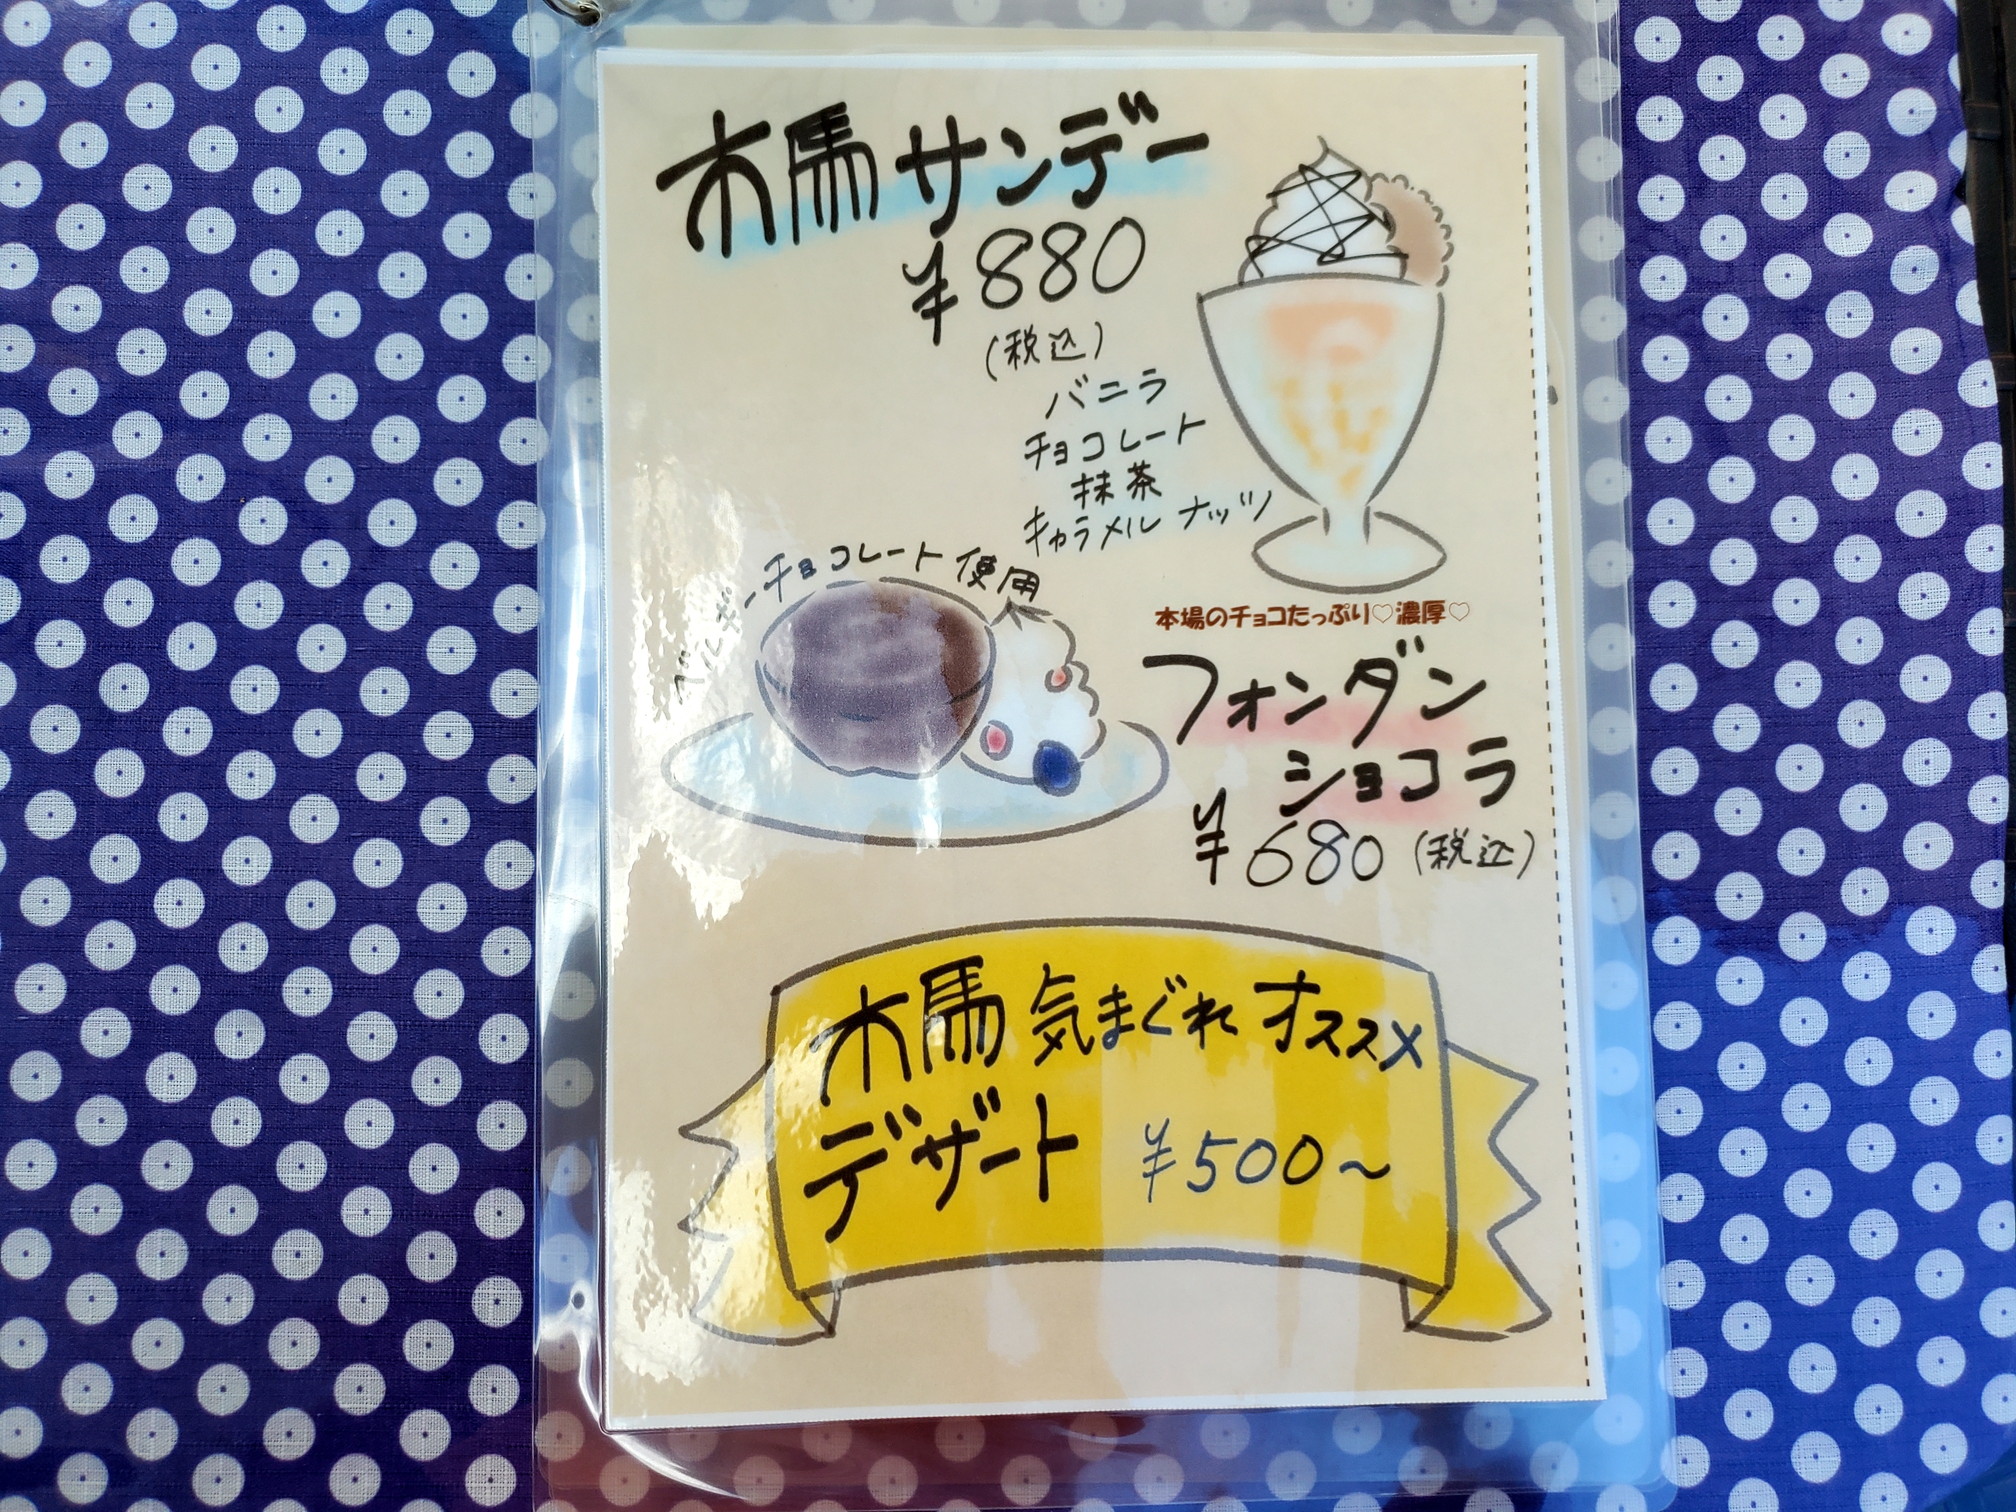 木馬サンデー
¥880
(税込)
バニラ
チョコレート
抹茶
キャラメルナッツ
ベルギーチョコレート使用
本場のチョコたっぷり♡濃厚♡
フォンダン
ショコラ
¥680(税込)
木馬 気まぐれ オススメ
デザート ¥500～